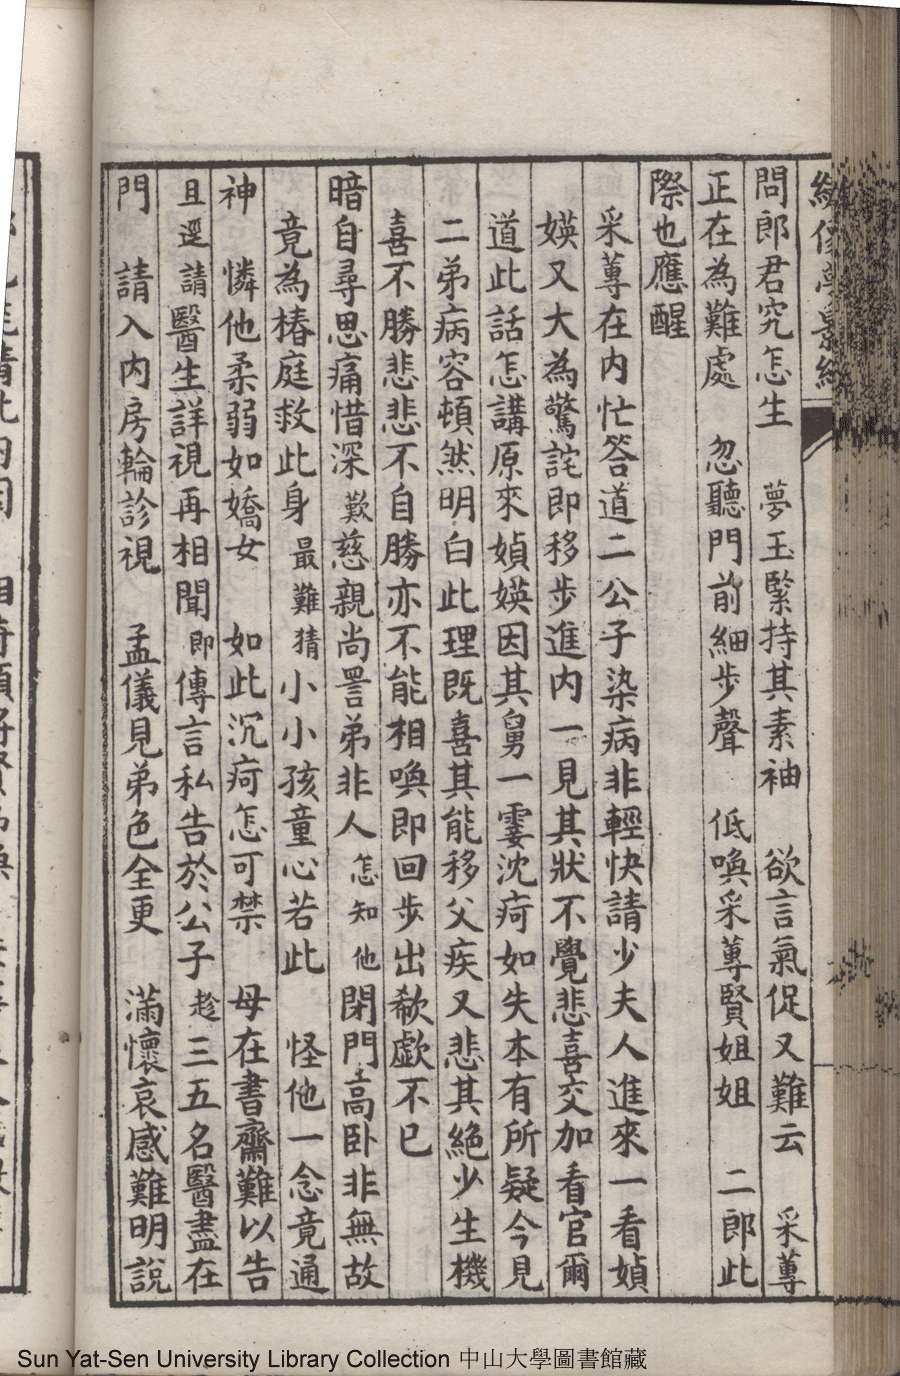 繡像夢景緣
問郎君究怎生　夢玉緊持其素袖　欲言氣促又難云　采蓴
正在為難處　忽聽門前細步聲　低喚采蓴賢姐姐　二郎此
際也應醒
采蓴在内忙答道二公子染病非輕快請少夫人進來一看媜
媖又大為驚詫即移步進内一見其狀不覺悲喜交加看官爾
道此話怎講原來媜媖因其舅一霎沈疴如失本有所疑今見
二弟病容頓然明白此理既喜其能移父疾又悲其絶少生機
喜不勝悲悲不自勝亦不能相喚即回步出欷歔不已
暗自尋思痛惜深　歎慈親尚詈弟非人　怎知他閉門高卧非無故
竟為椿庭救此身　最難猜小小孩童心若此　怪他一念竟通
神　憐他柔弱如嬌女　如此沉疴怎可禁　母在書齋難以告
且遲請醫生詳視再相聞　即傳言私告於公子　趁三五名醫盡在
門　請入内房輪診視　孟儀見弟色全更　滿懷哀感難明說
Sun Yat-Sen University Library Collection 中山大學圖書館藏